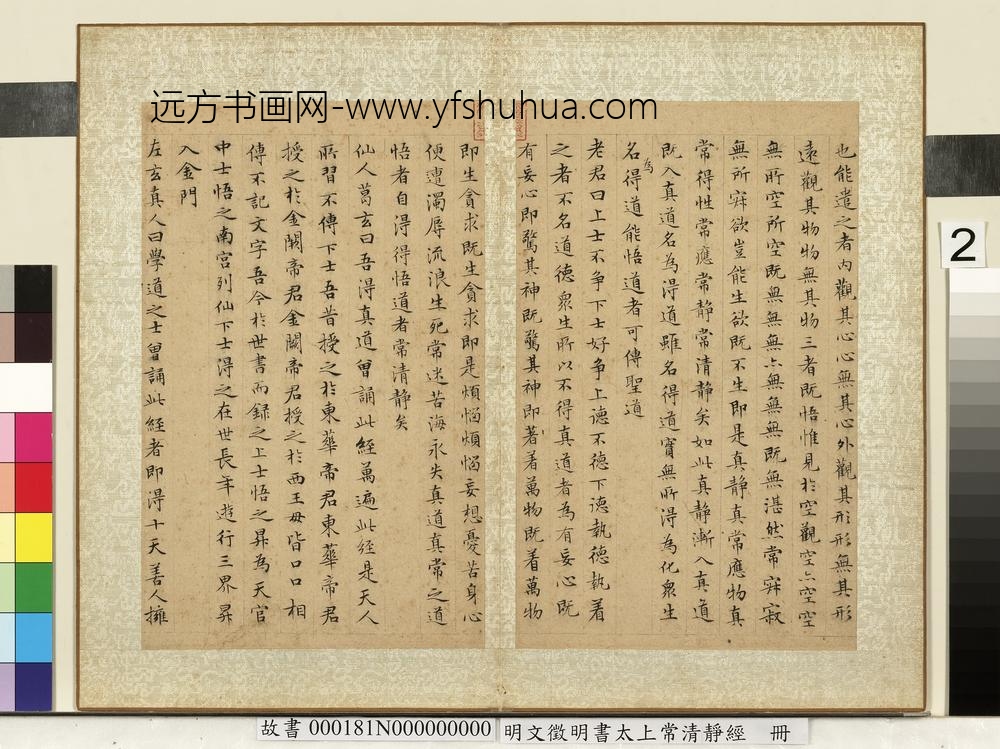 远方书画网-www.yfshuhua.com
也能遣之者内觀其心心無其心外觀其形形無其形
遠觀其物物無其物三者既悟惟見於空觀空亦空空
無所空所空既無無無亦無無無既無湛然常寂寂
無所寂欲豈能生欲既不生即是真静真常應物真
常得性常應常静常清静矣如此真静漸入真道
既入真道名為得道雖名得道實無所得為化衆生
名為得道能悟道者可傳聖道
老君曰上士不争下士好争上德不德下德執德執着
之者不名道德衆生所以不得真道者為有妄心既
有妄心即驚其神既驚其神即著着萬物既着萬物
即生貪求既生貪求即是煩惱煩惱妄想憂苦身心
便遭濁辱流浪生死常迷苦海永失真道真常之道
悟者自得得悟道者常清静矣
仙人葛玄曰吾得真道曽誦此經萬遍此經是天人
所習不傳下士吾昔授之於東華帝君東華帝君
授之於金闕帝君金闕帝君授之於西王母皆口口相
傳不記文字吾今於世書而録之上士悟之昇為天官
中士悟之南宫列仙下士得之在世長年遊行三界昇
入金門
左玄真人曰學道之士曽誦此經者即得十天善人擁
2
故書 000181N000000000
明文徵明書太上常清靜經 冊